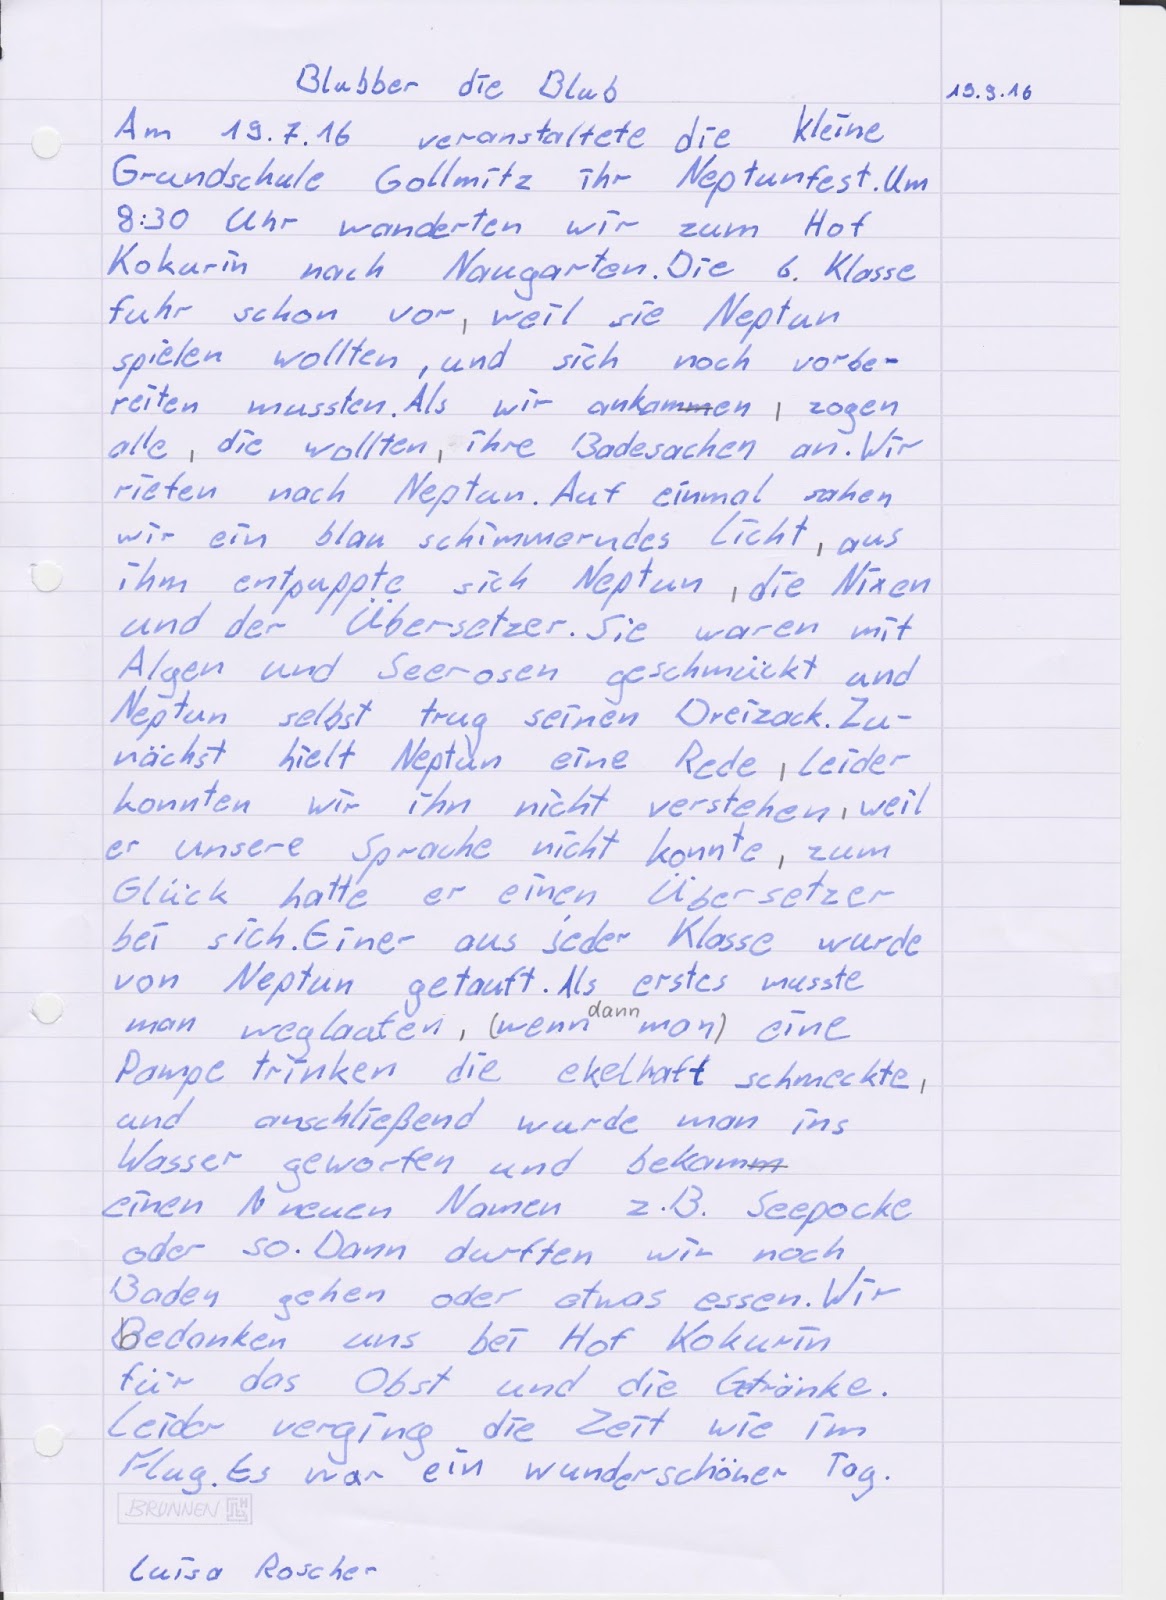 Blubber die Blub
19.9.16
Am 19.7.16 veranstaltete die kleine
Grundschule Gollmitz ihr Neptunfest. Um
8:30 Uhr wanderten wir zum Hof
Kokurin nach Naugarten. Die 6. Klasse
fuhr schon vor, weil sie Neptun
spielen wollten, und sich noch vorbe-
reiten mussten. Als wir ankammen, zogen
alle, die wollten, ihre Badesachen an. Wir
riefen nach Neptun. Auf einmal sahen
wir ein blau schimmerndes Licht, aus
ihm entpuppte sich Neptun, die Nixen
und der Übersetzer. Sie waren mit
Algen und Seerosen geschmückt und
Neptun selbst trug seinen Dreizack. Zu-
nächst hielt Neptun eine Rede, leider
konnten wir ihn nicht verstehen, weil
er unsere Sprache nicht konnte, zum
Glück hatte er einen Übersetzer
bei sich. Einer aus jeder Klasse wurde
von Neptun getauft. Als erstes musste
man weglaufen, (wenn dann man) eine
Pampe trinken die ekelhaft schmeckte,
und anschließend wurde man ins
Wasser geworfen und bekamm
einen N neuen Namen z.B. Seepocke
oder so. Dann durften wir noch
Baden gehen oder etwas essen. Wir
bedanken uns bei Hof Kokurin
für das Obst und die Getränke.
Leider verging die Zeit wie im
Flug. Es war ein wunderschöner Tag.
BRUNNEN
Luisa Roscher